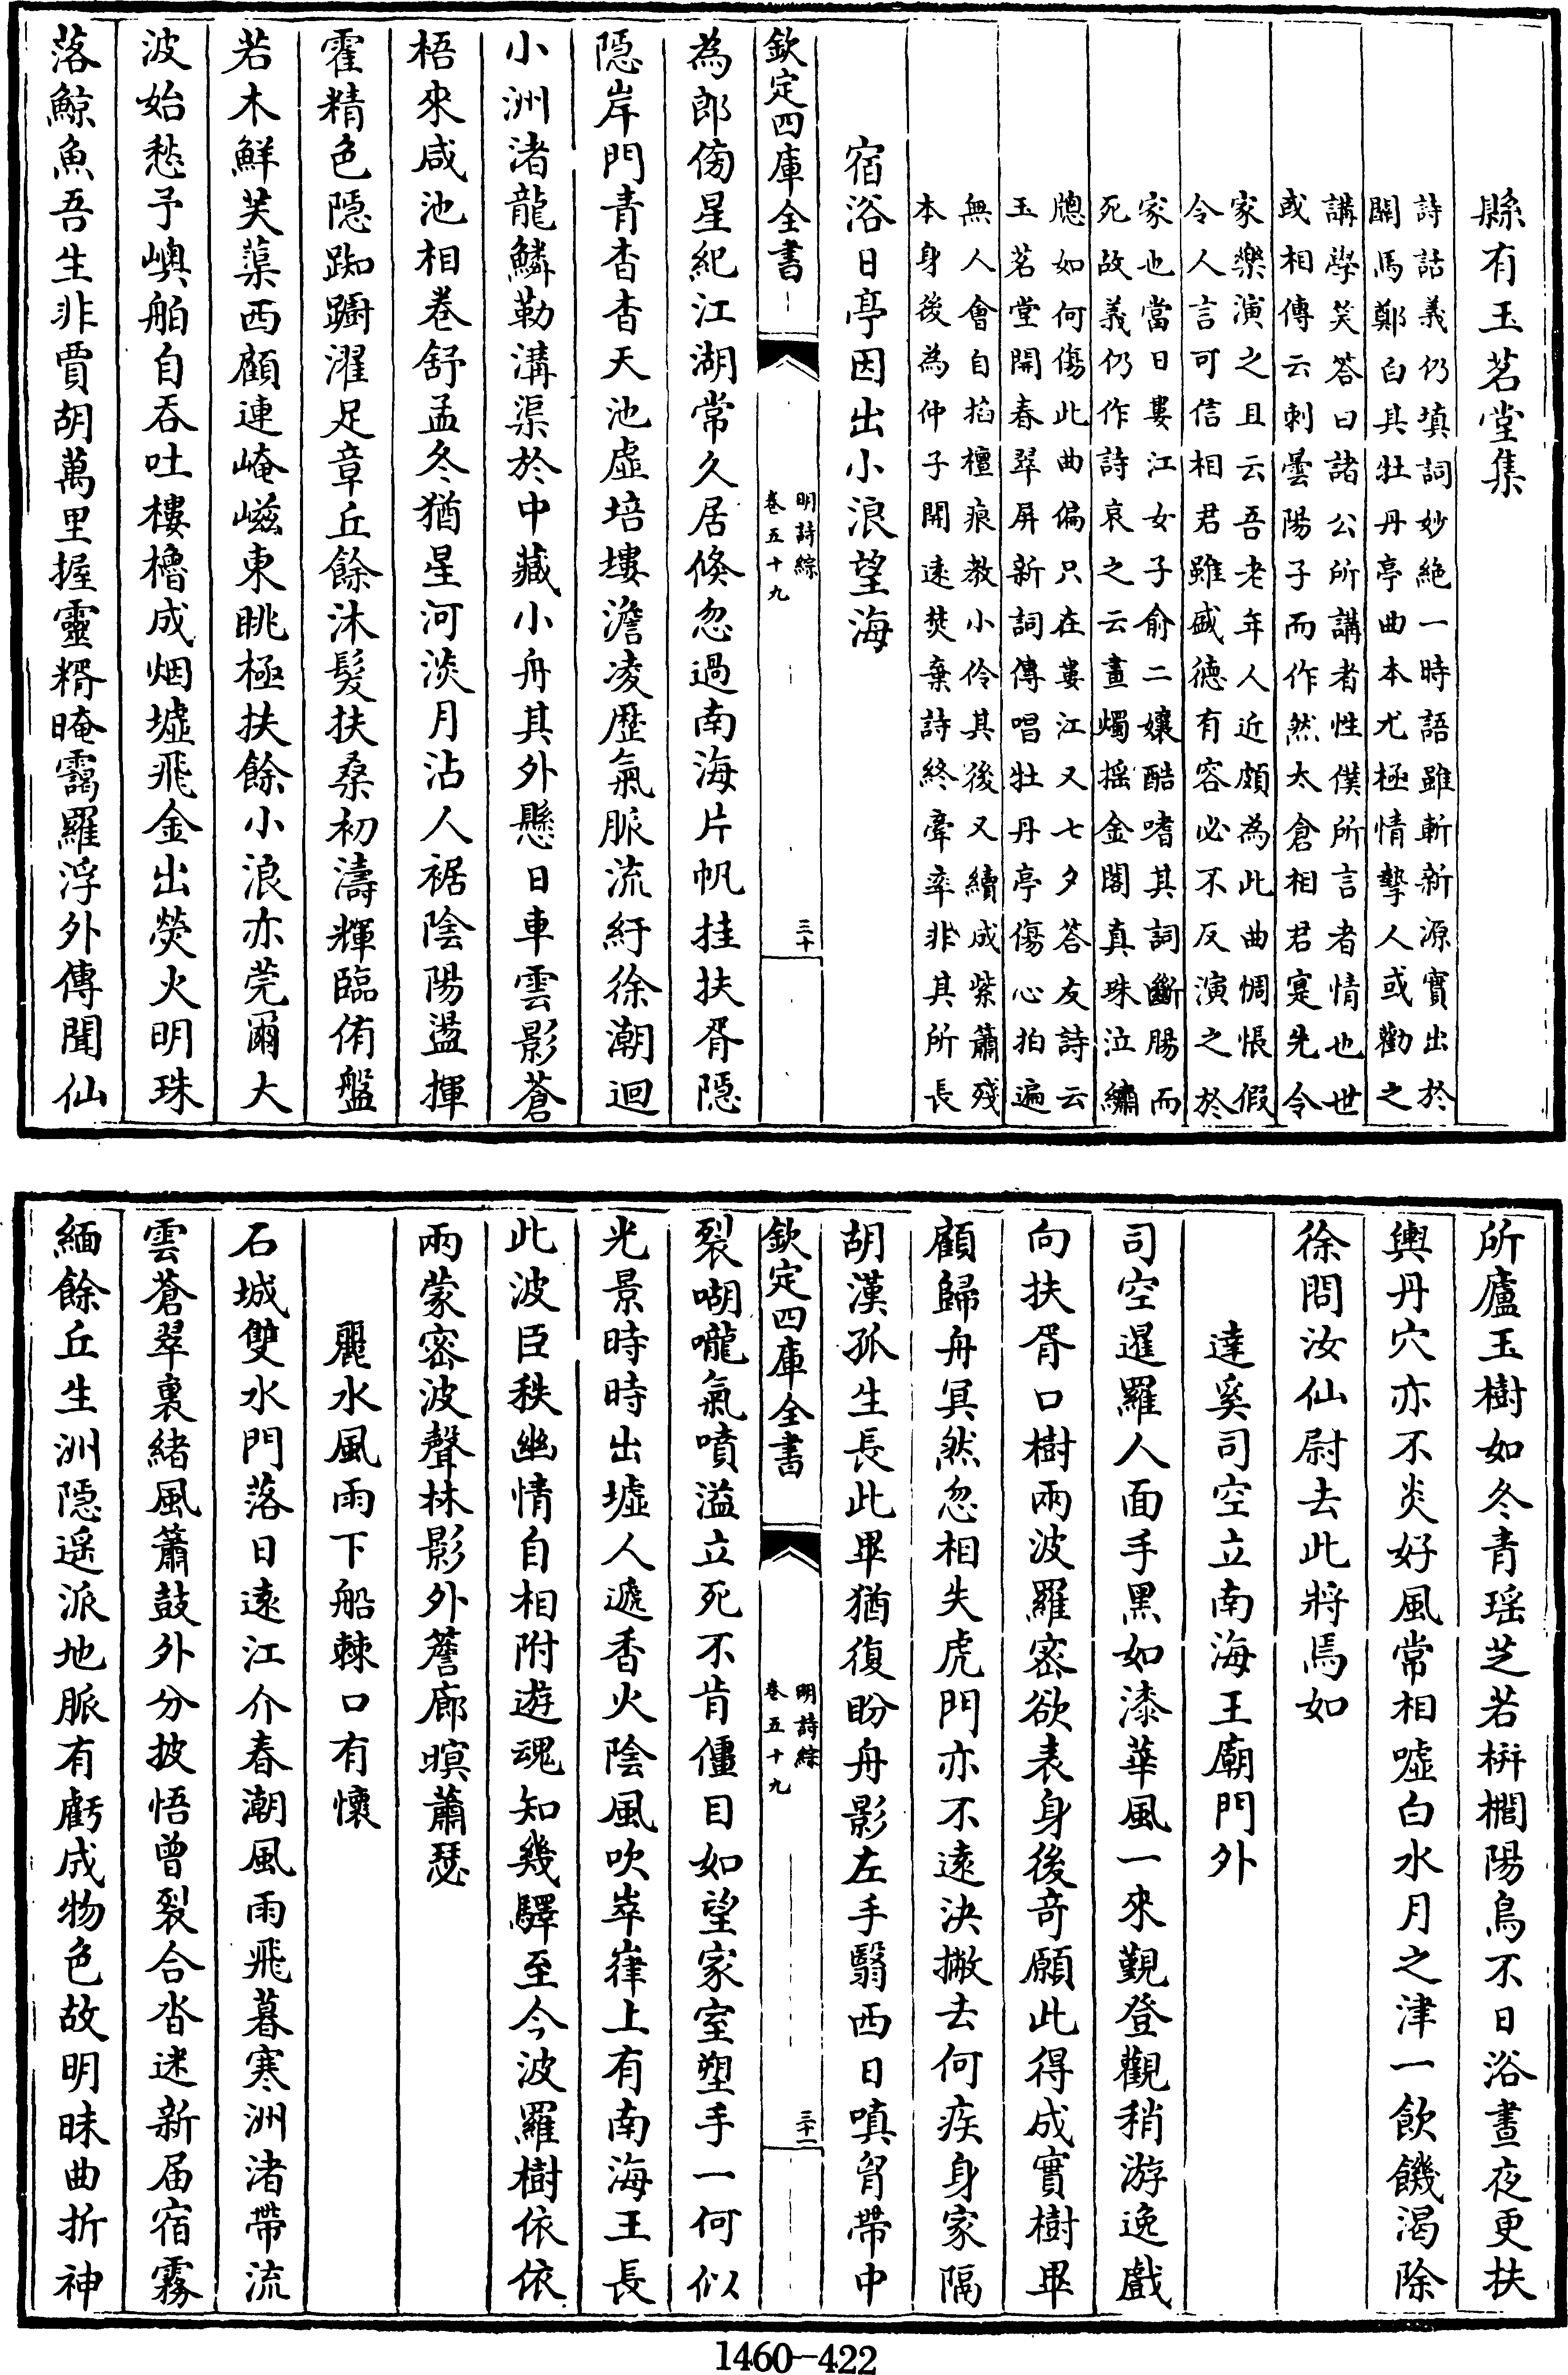 縣有玉茗堂集
詩話義仍填詞妙絶一時語雖斬新源實出於
關馬鄭白其牡丹亭曲本尤極情摯人或勸之
講學笑答曰諸公所講者性僕所言者情也世
或相傳云刺曇陽子而作然太倉相君寔先令
家樂演之且云吾老年人近頗為此曲惆悵假
令人言可信相君雖盛徳有容必不反演之於
家也當日婁江女子俞二孃酷嗜其詞斷腸而
死故義仍作詩哀之云畫燭搖金閣真珠泣繡
牕如何傷此曲偏只在婁江又七夕答友詩云
玉茗堂開春翠屏新詞傳唱牡丹亭傷心拍遍
無人會自掐檀痕教小伶其後又續成紫簫殘
本身後為仲子開逺焚棄詩終牽率非其所長
宿浴日亭因出小浪望海
欽定四庫全書
明詩綜
卷五十九
三十
為郎傍星紀江湖常久居倏忽過南海片帆挂扶胥隱
隠岸門青杳杳天池虛培塿澹凌歷氣脈流紆徐潮迴
小洲渚龍鱗勒溝渠於中藏小舟其外懸日車雲影蒼
梧來咸池相卷舒孟冬猶星河淡月沾人裾陰陽盪揮
霍精色隠踟躕濯足章丘餘沐髮扶桑初濤輝臨侑盤
若木鮮芙蕖西顧連崦嵫東眺極扶餘小浪亦莞爾大
波始愁予嶼舶自吞吐樓櫓成烟墟飛金出熒火明珠
落鯨魚吾生非賈胡萬里握靈糈晻靄羅浮外傳聞仙
所廬玉樹如冬青瑶芝若栟櫚陽鳥不日浴晝夜更扶
輿丹穴亦不炎好風常相噓白水月之津一飲饑渴除
徐問汝仙尉去此將焉如
達奚司空立南海王廟門外
司空暹羅人面手黑如漆華風一來觀登觀稍游逸戲
向扶胥口樹兩波羅密欲表身後奇願此得成實樹畢
顧歸舟冥然忽相失虎門亦不遠決撇去何疾身家隔
胡漢孤生長此畢猶復盼舟影左手翳西日嗔胷帶中
欽定四庫全書
明詩綜
卷五十九
三十一
裂唿嚨氣噴溢立死不肯僵目如望家室塑手一何似
光景時時出墟人遞香火陰風吹崒嵂上有南海王長
此波臣秩幽情自相附遊魂知幾驛至今波羅樹依依
兩蒙密波聲林影外簷廊暝蕭瑟
麗水風雨下船棘口有懷
石城雙水門落日遠江介春潮風雨飛暮寒洲渚帶流
雲蒼翠裏緒風簫鼓外分披悟曾裂合沓迷新届宿霧
緬餘丘生洲隠遥派地脈有虧成物色故明昧曲折神
1460-422